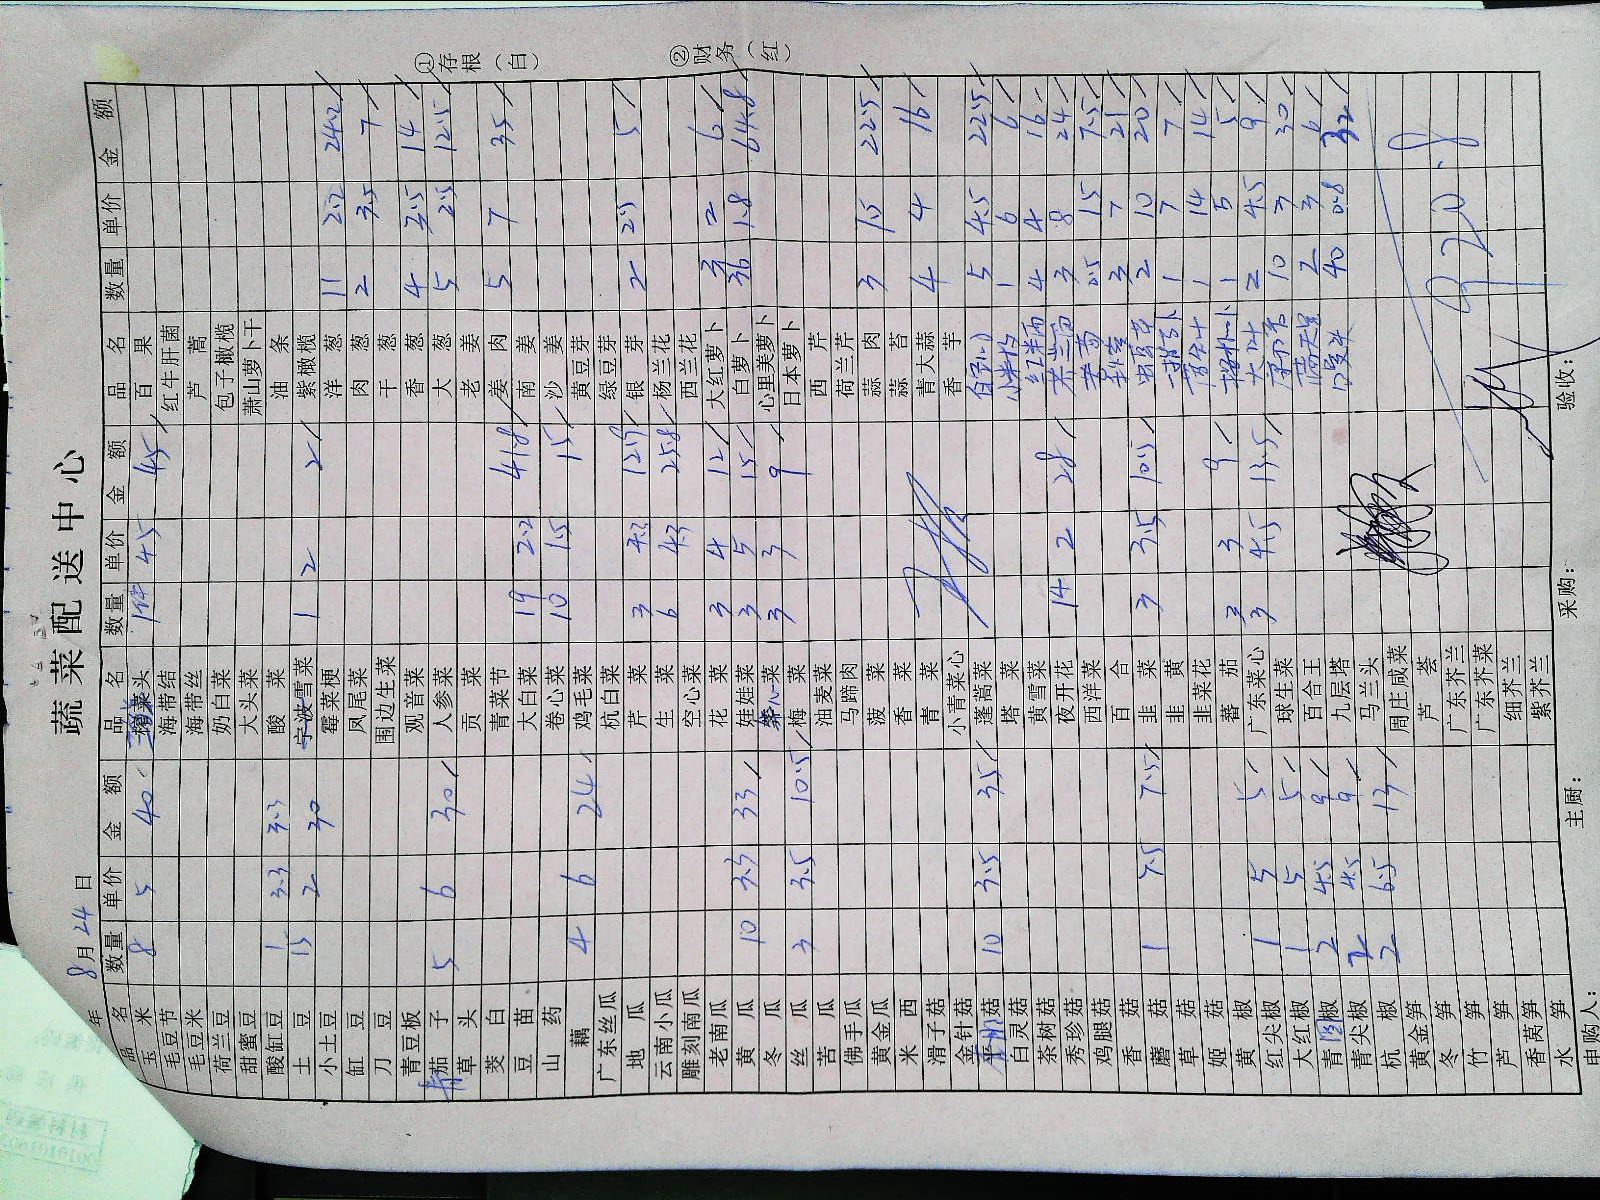 蔬菜配送中心
年 8月24日
①存根（白）
②财务（红）
品名 数量 单价 金额 品名 数量 单价 金额 品名 数量 单价 金额
玉米 8 5 40 头 1件 45 45 百果
毛豆节 海带结 红牛肝菌
毛豆米 海带丝 芦蒿
荷兰豆 奶白菜 包子橄榄
甜蜜豆 大头菜 萧山萝卜干
酸缸豆 1 3.3 3.3 酸菜 油条
土豆 15 2 30 宁波雪菜 1 2 2 紫橄榄
小土豆 霉菜梗 洋葱 11 2.2 24.2
缸豆 凤尾菜 肉葱 2 3.5 7
刀豆 围边生菜 干葱
青豆板 观音菜 香葱 4 3.5 14
茄子 5 6 30 人参菜 大葱 5 2.5 12.5
草头 贡菜 老姜
茭白 青菜节 姜肉 5 7 35
豆苗 大白菜 19 2.2 41.8 南姜
山药 卷心菜 10 1.5 15 沙姜
藕 4 6 24 鸡毛菜 黄豆芽
广东丝瓜 杭白菜 绿豆芽
地瓜 芹菜 3 4.3 12.9 银芽 2 2.5 5
云南小瓜 生菜 6 4.3 25.8 杨兰花
雕刻南瓜 空心菜 西兰花
老南瓜 花菜 3 4 12 大红萝卜 3 2 6
黄瓜 10 3.3 33 娃娃菜 3 5 15 白萝卜 36 1.8 64.8
冬瓜 菜 3 3 9 心里美萝卜
丝瓜 3 3.5 10.5 梅菜 日本萝卜
苦瓜 油麦菜 西芹
佛手瓜 马蹄肉 荷兰芹
黄金瓜 菠菜 蒜肉 3 7.5 22.5
米西 香菜 蒜苔
滑子菇 青菜 青大蒜 4 4 16
金针菇 小青菜心 香芋
菇 10 3.5 35 蓬蒿菜 5 4.5 22.5
白灵菇 塔菜 小米椒 1 6 6
茶树菇 黄雪菜 4 4 16
秀珍菇 夜开花 14 2 28 3 8 24
鸡腿菇 西洋菜 0.5 15 7.5
香菇 百合 3 7 21
蘑菇 1 7.5 7.5 韭菜 3 3.5 10.5 虫草花 2 10 20
草菇 韭黄 1 7 7
姬菇 韭菜花 1 14 14
黄椒 蕃茄 3 3 9 1 5 5
红尖椒 1 5 5 广东菜心 3 4.5 13.5 2 4.5 9
大红椒 1 5 5 球生菜 10 3 30
青圆椒 2 4.5 9 百合王 满天星 2 3 6
青尖椒 2 4.5 9 九层塔 40 0.8 32
杭椒 2 6.5 13 马兰头
黄金笋 周庄咸菜
冬笋 芦荟
竹笋 广东芥兰
芦笋 广东芥菜
香莴笋 细芥兰
水笋 紫芥兰
920.8
申购人： 主厨： 采购： 验收：